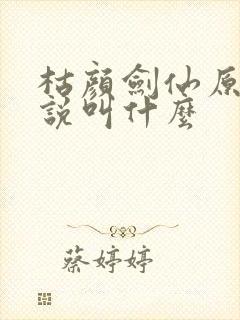 枯顏劍仙原
說叫什麼
蔡婷婷